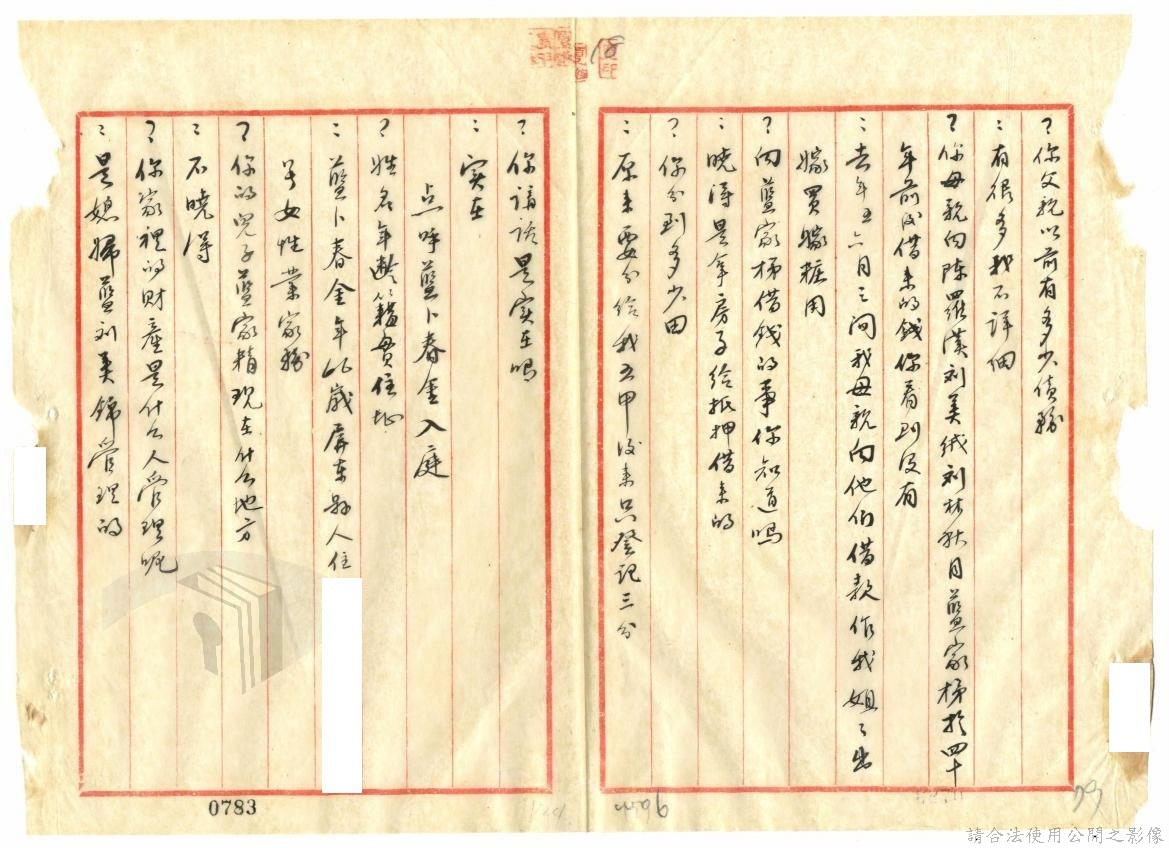 ？你父親以前有多少債務
：有很多我不詳細
？你母親向陈羅漢刘美绒刘林秋月藍家梯於四十
年前後借来的錢你看到没有
：去年五六月之间我母親向他们借款作我姐々出
嫁買嫁粧用
？向藍家梯借錢的事你知道嗎
：曉得是拿房子给抵押借来的
？你分到多少田
：原来要分给我五甲後来只登记三分
？你講话是实在嗎
：实在
点呼藍卜春金入庭
？姓名年齡籍貫住址
：藍卜春金年 歲屏东县人住
女性業家務
？你的兒子藍家精现在什么地方
：不曉得
？你家裡的財產是什么人管理呢
：是媳婦藍刘美錦管理的
0783
請合法使用公開之影像